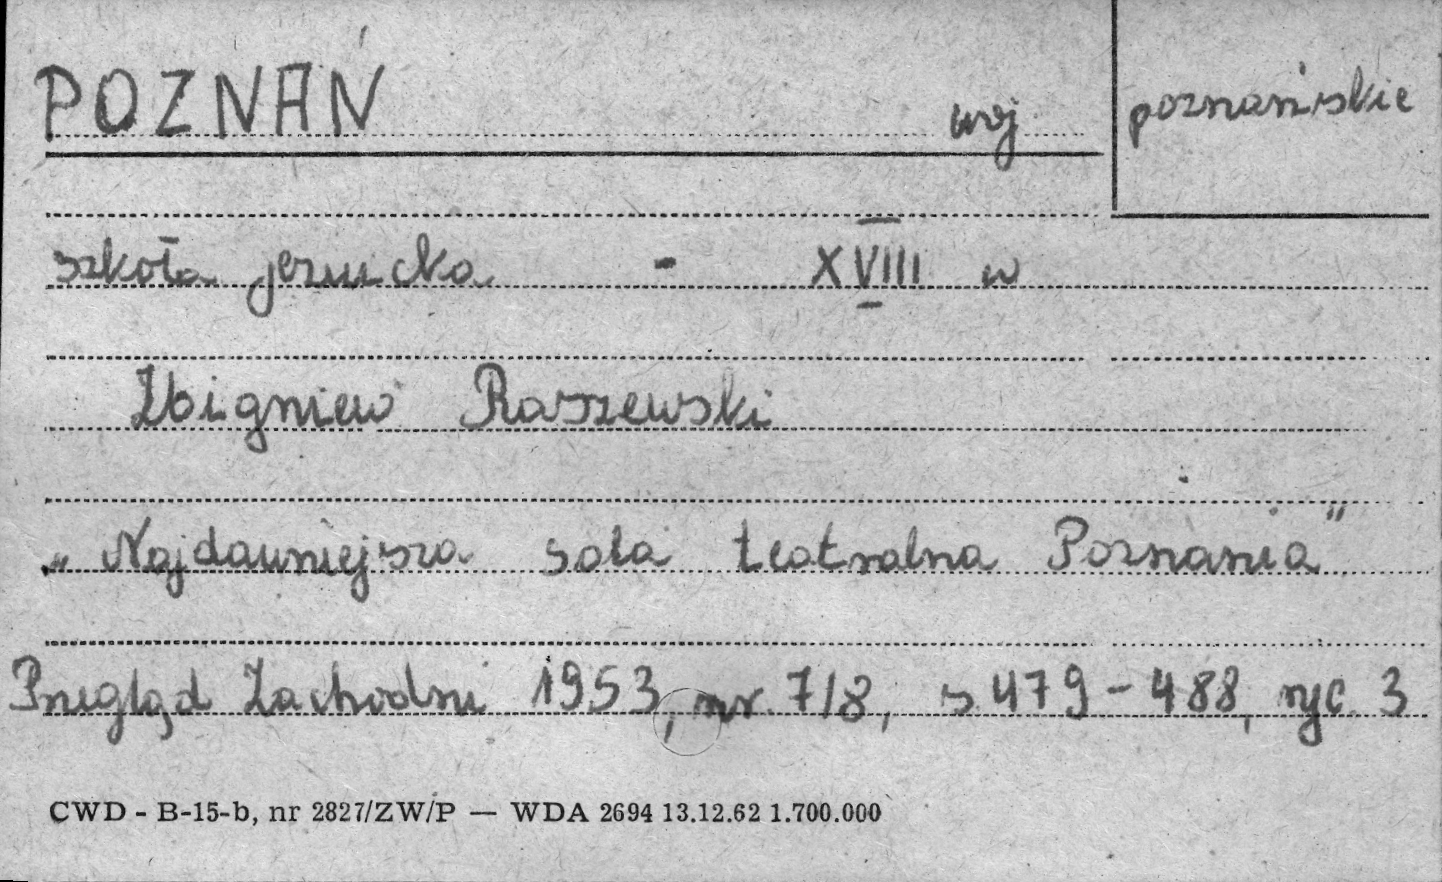 POZNAŃ woj poznańskie
szkoła jezuicka - XVIII w
Zbigniew Raszewski
„Najdawniejsza sala teatralna Poznania"
Przegląd Zachodni 1953, nr. 7/8, s 479-488, ryc. 3
CWD - B-15-b, nr 2827/ZW/P — WDA 2694 13.12.62 1.700.000